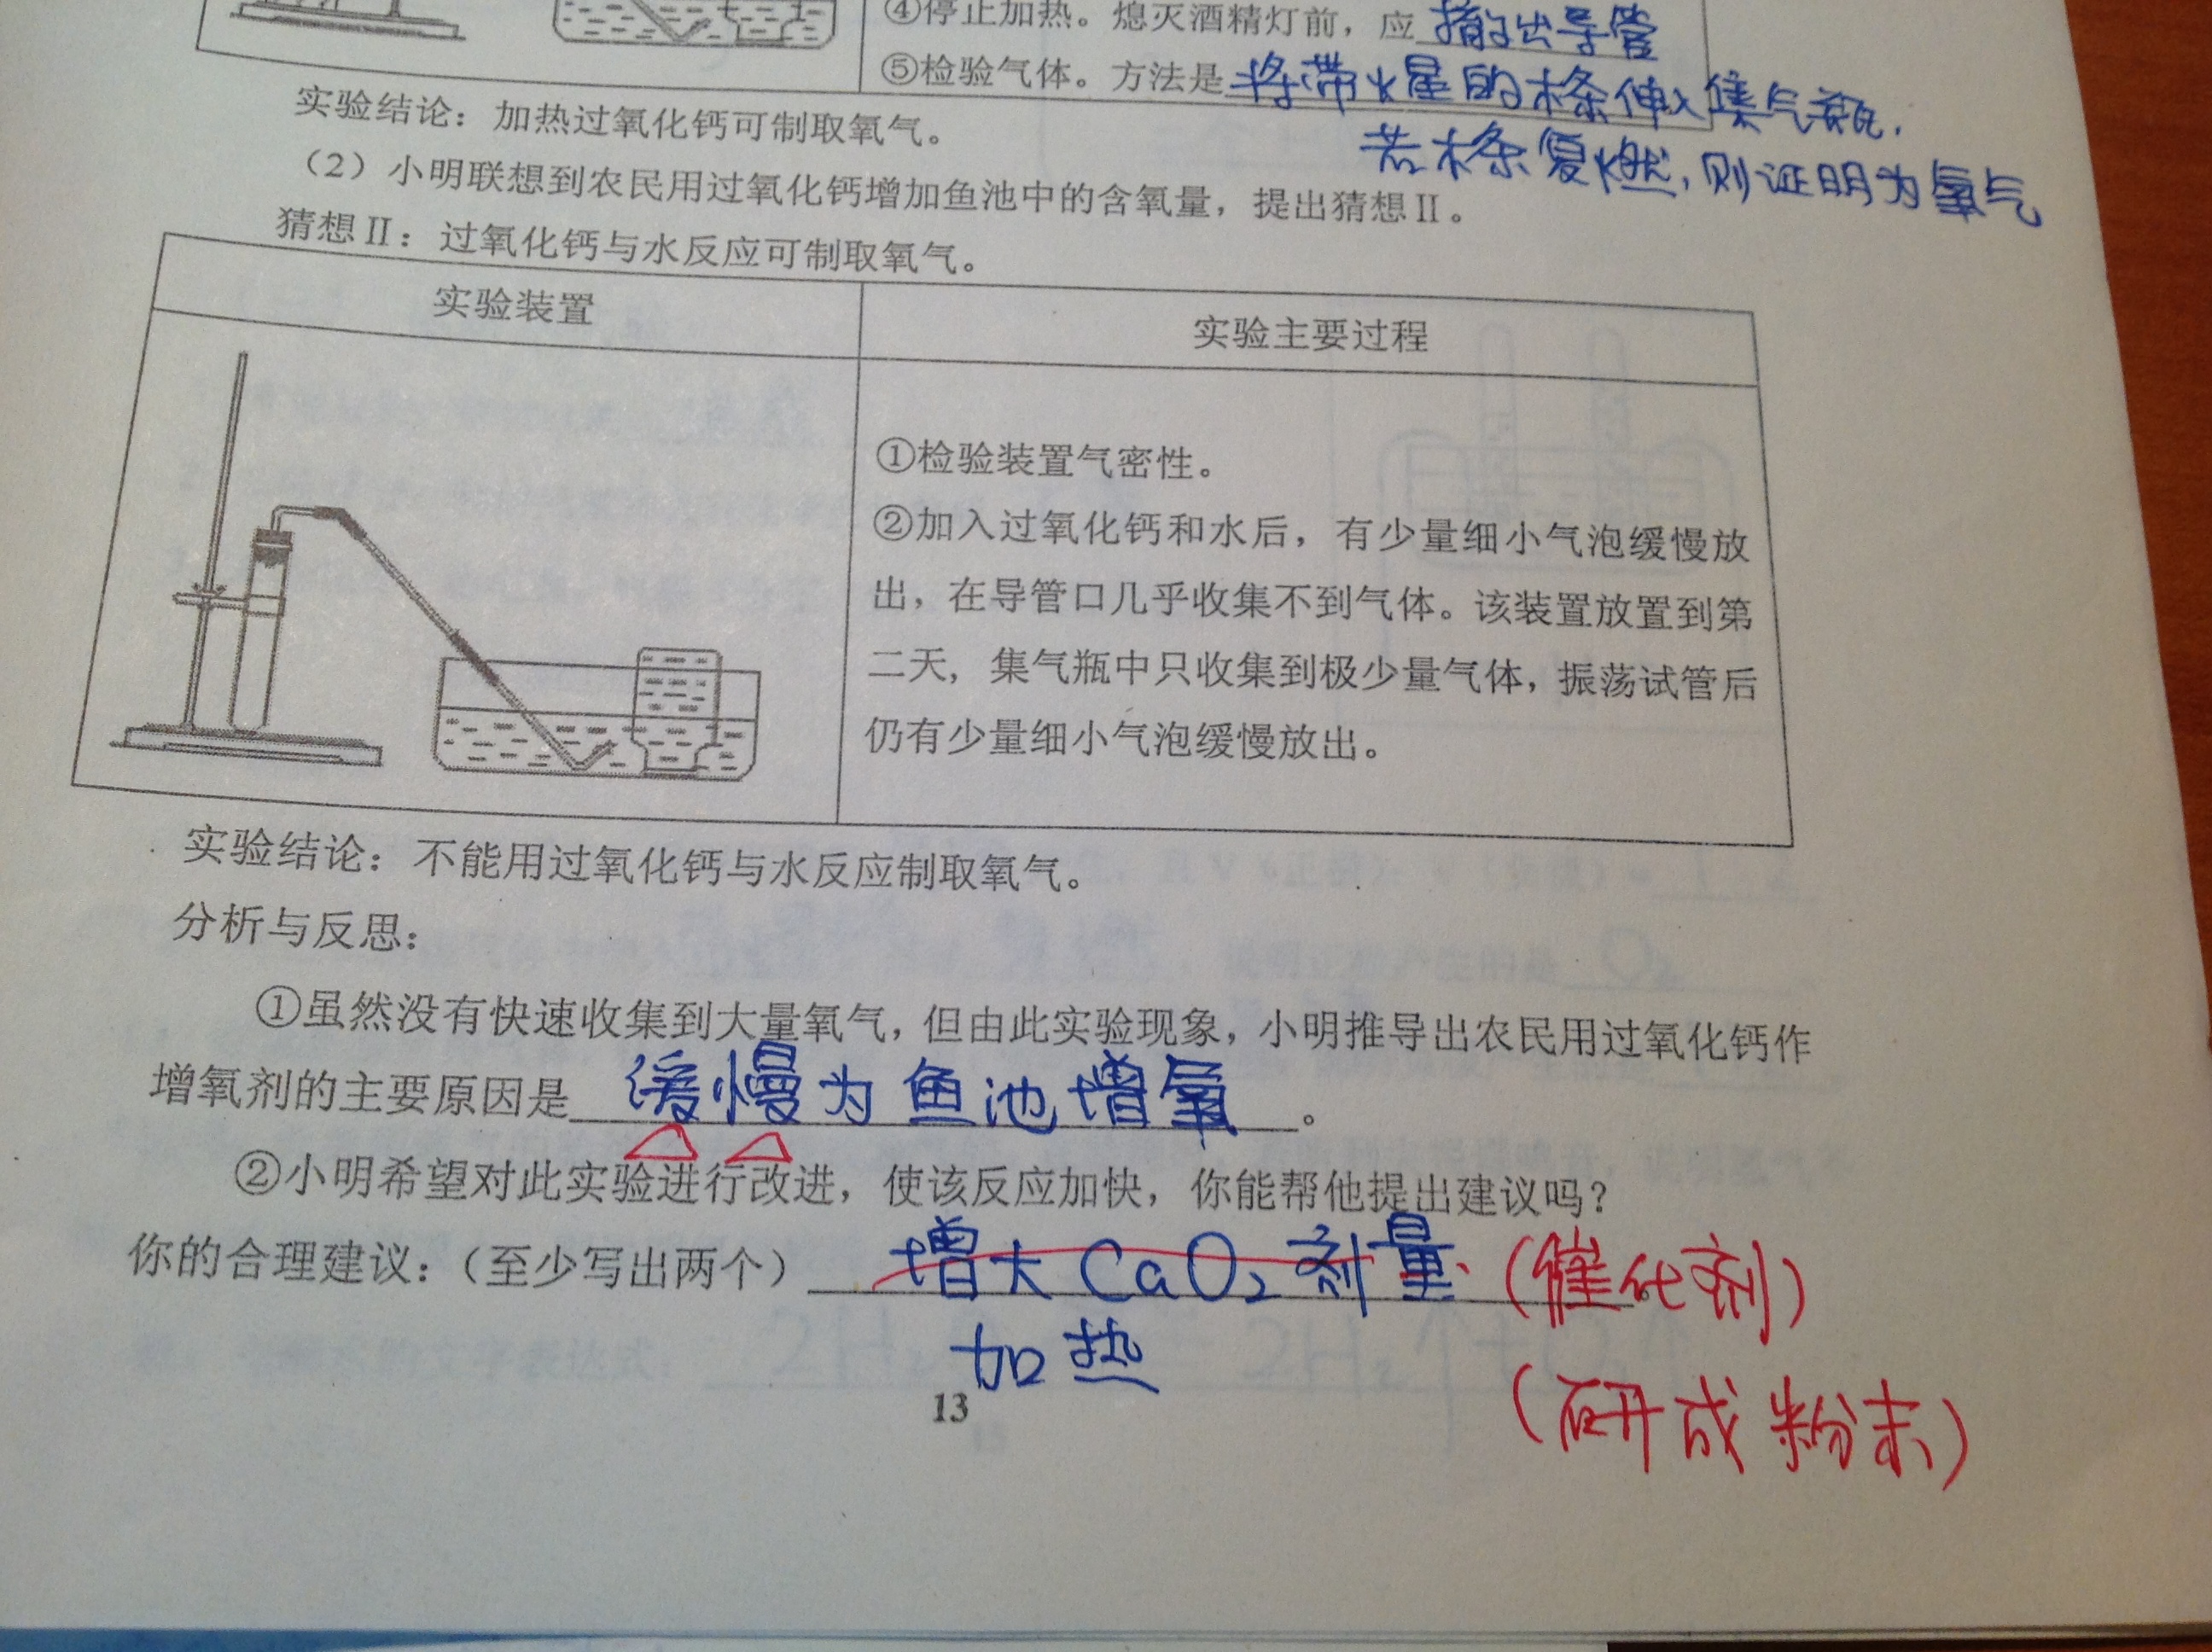 ④停止加热。熄灭酒精灯前，应 摘出导管
⑤检验气体。方法是 将带火星的木条伸入集气瓶，
若木条复燃，则证明为氧气
实验结论：加热过氧化钙可制取氧气。
（2）小明联想到农民用过氧化钙增加鱼池中的含氧量，提出猜想Ⅱ。
猜想Ⅱ：过氧化钙与水反应可制取氧气。
实验装置
实验主要过程
①检验装置气密性。
②加入过氧化钙和水后，有少量细小气泡缓慢放
出，在导管口几乎收集不到气体。该装置放置到第
二天，集气瓶中只收集到极少量气体，振荡试管后
仍有少量细小气泡缓慢放出。
实验结论：不能用过氧化钙与水反应制取氧气。
分析与反思：
①虽然没有快速收集到大量氧气，但由此实验现象，小明推导出农民用过氧化钙作
增氧剂的主要原因是 缓慢为鱼池增氧 。
②小明希望对此实验进行改进，使该反应加快，你能帮他提出建议吗？
你的合理建议：（至少写出两个） 增大CaO₂剂量. （催化剂）
加热
（研成粉末）
13